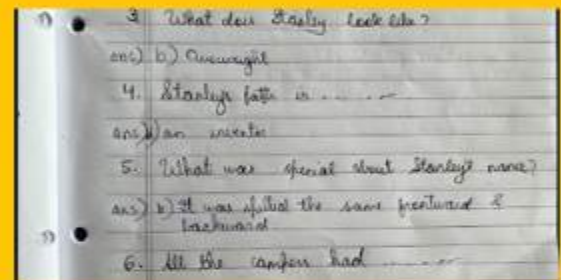 3. What does Stanley look like?
ans) b) Overweight
4. Stanleys father is ......
ans) b) an inventor
5. What was special about Stanley's name?
ans) b) It was spelled the same frontward &
backward
6. All the campers had ......